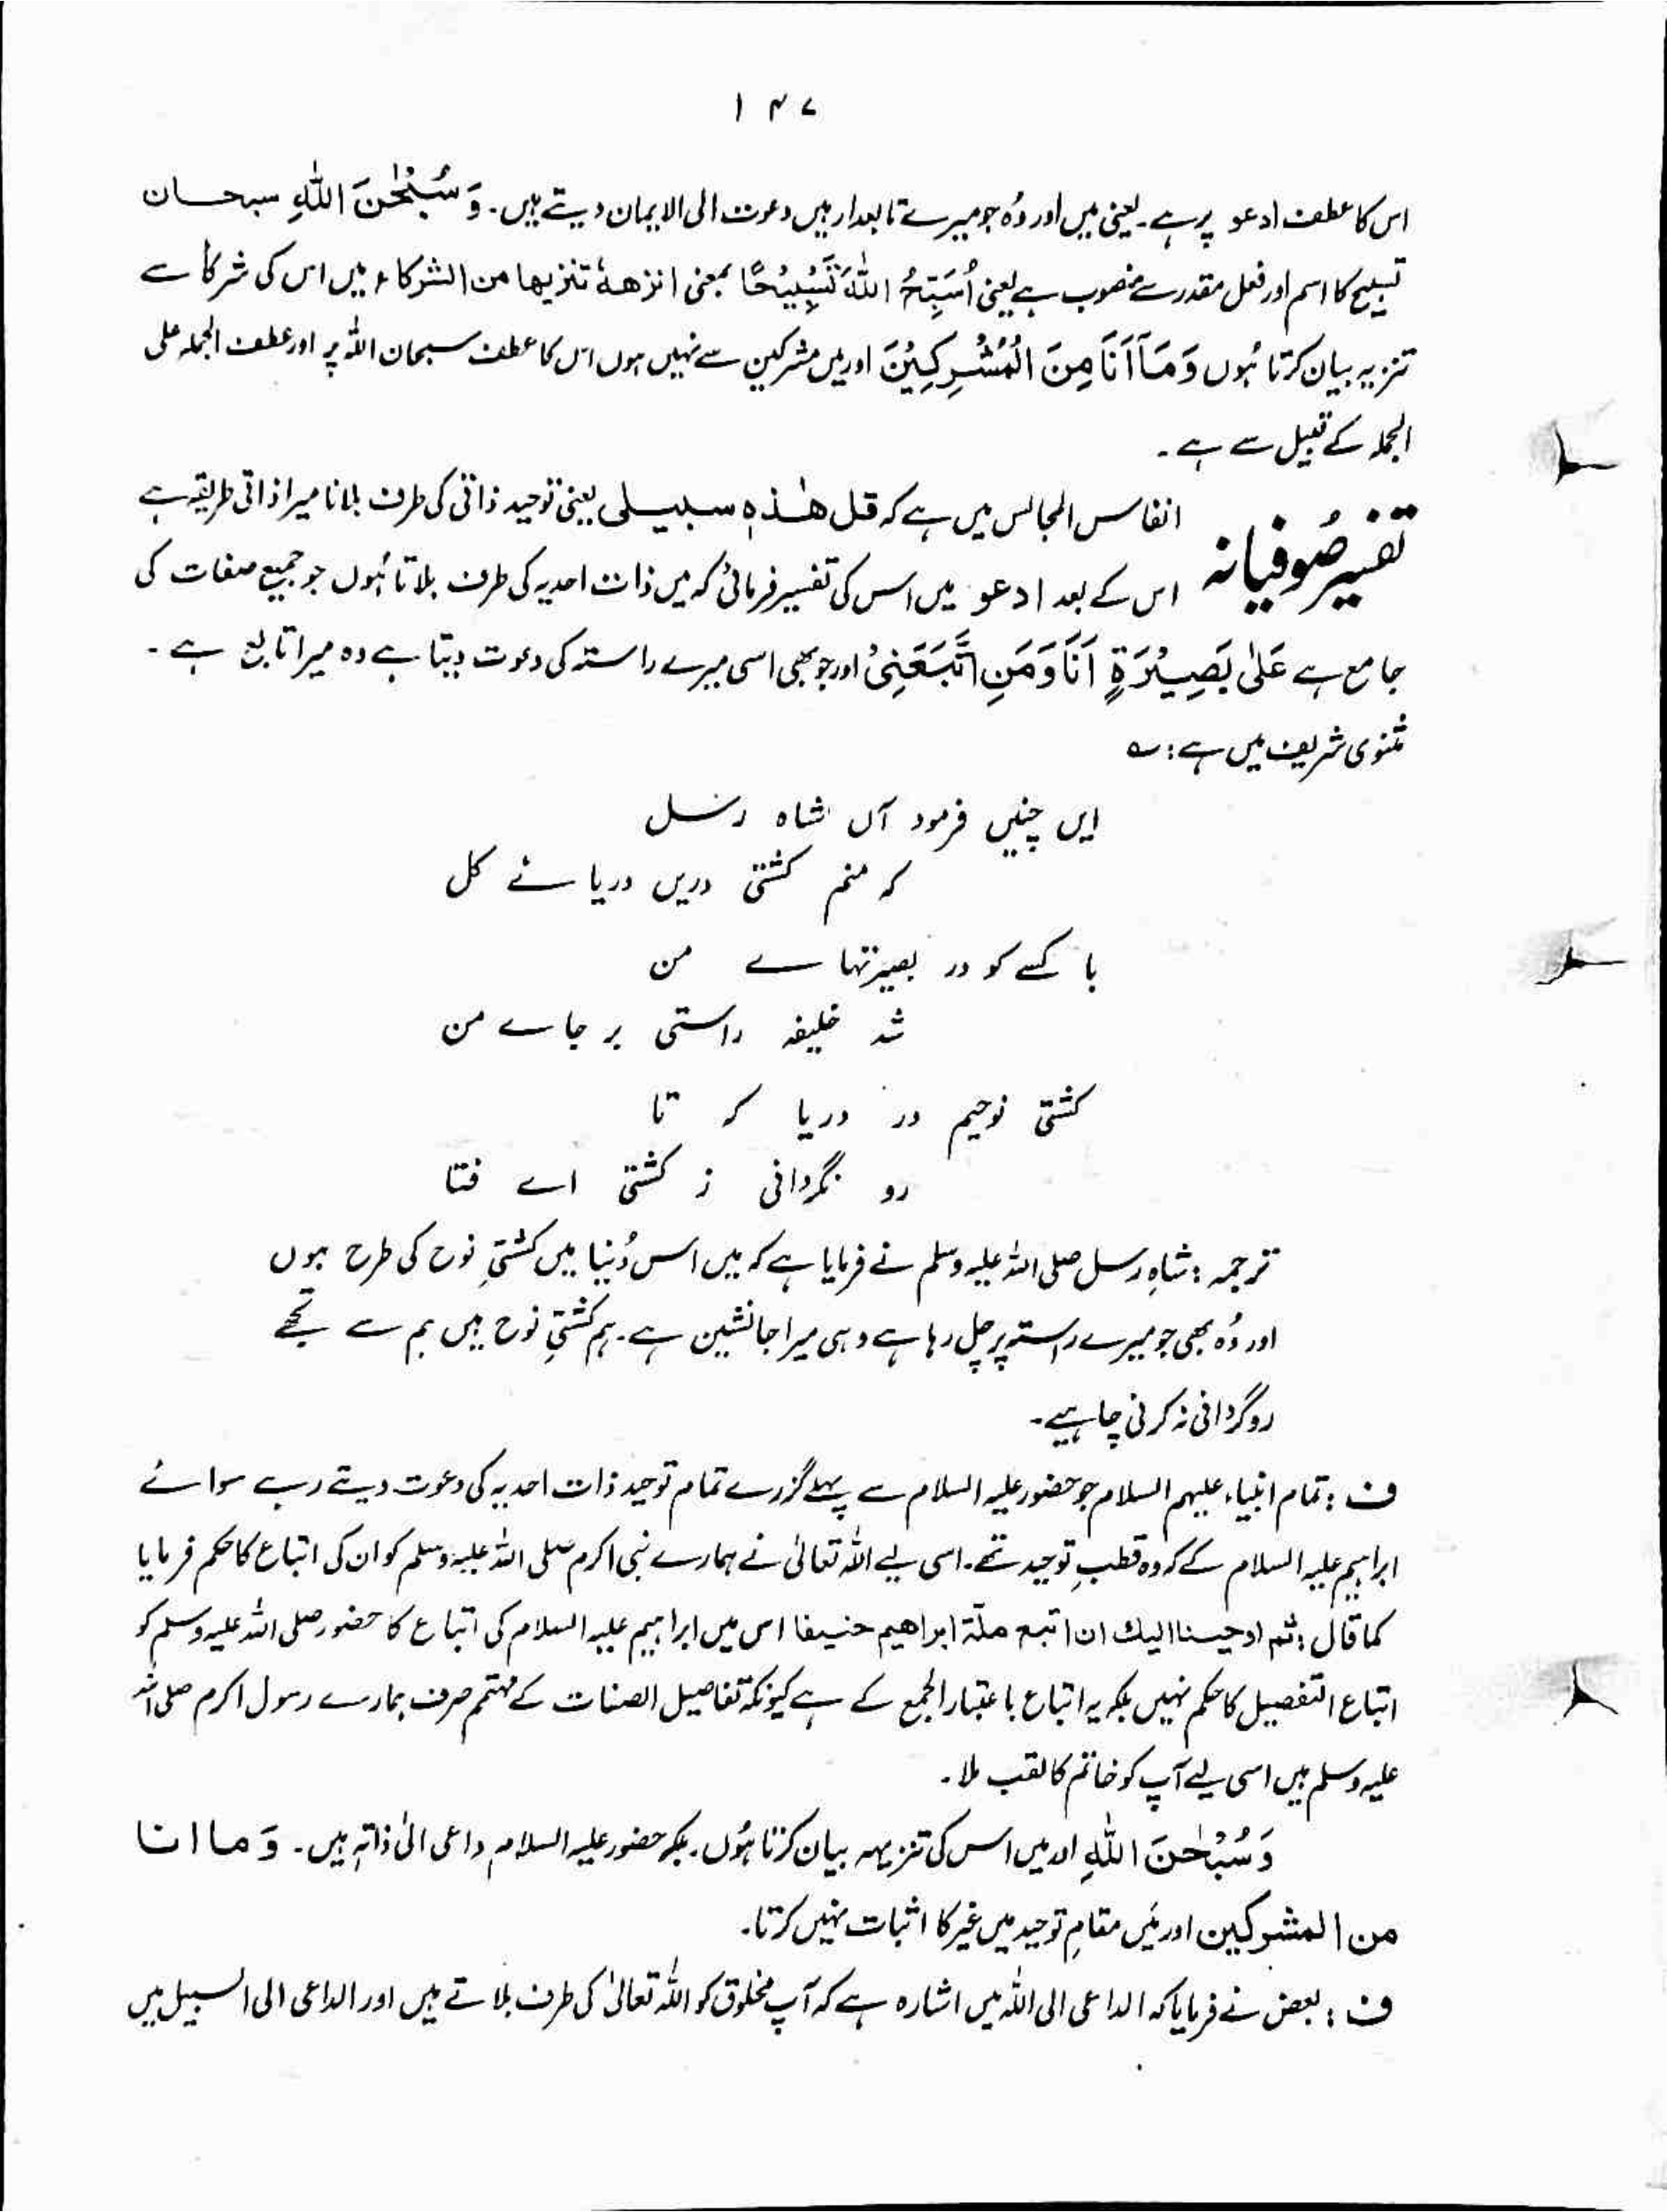 ۱۴۷
اس کا عطف ادعو پر ہے۔ یعنی میں اور وُہ جو میرے تابعدار ہیں دعوت الی الایمان دیتے ہیں۔ وَسُبْحٰنَ اللّٰهِ سبحان
تسبیح کا اسم اور فعل مقدر سے منصوب ہے یعنی اُسَبِّحُ اللّٰهَ تَسْبِیْحًا بمعنی انزھہٗ تنزیھا من الشرکاء میں اس کی شرکاٗ سے
تنزیہ بیان کرتا ہُوں وَمَآ اَنَا مِنَ الْمُشْرِكِیْنَ اور میں مشرکین سے نہیں ہوں اس کا عطف سبحان اللہ پر اور عطف الجملہ علی
الجملہ کے قبیل سے ہے۔
تفسیر صُوفیانہ انفاس المجالس میں ہے کہ قل ھٰذہٖ سبیلی یعنی توحید ذاتی کی طرف بلانا میرا ذاتی طریقہ ہے
اس کے بعد ادعو میں اس کی تفسیر فرمائی کہ میں ذات احدیہ کی طرف بلاتا ہُوں جو جمیع صفات کی
جامع ہے عَلٰی بَصِیْرَةٍ اَنَا وَمَنِ اتَّبَعَنِیْ اور جو بھی اسی میرے راستہ کی دعوت دیتا ہے وہ میرا تابع ہے۔
مثنوی شریف میں ہے : ؎
ایں چنیں فرمود آں شاہ رسل
کہ منم کشتی دریں دریائے کل
با کسے کو در بصیرتہاے من
شد خلیفہ راستی بر جاے من
کشتی نوحیم در دریا کہ تا
رو نگردانی ز کشتی اے فتا
ترجمہ : شاہِ رسل صلی اللہ علیہ وسلم نے فرمایا ہے کہ میں اس دُنیا میں کشتیِ نوح کی طرح ہوں
اور وُہ بھی جو میرے راستہ پر چل رہا ہے وہی میرا جانشین ہے۔ ہم کشتیِ نوح ہیں ہم سے تجھے
روگردانی نہ کرنی چاہیے۔
ف : تمام انبیاء علیہم السلام جو حضور علیہ السلام سے پہلے گزرے تمام توحید ذات احدیہ کی دعوت دیتے رہے سوائے
ابراہیم علیہ السلام کے کہ وہ قطبِ توحید تھے۔ اسی لیے اللہ تعالیٰ نے ہمارے نبی اکرم صلی اللہ علیہ وسلم کو ان کی اتباع کا حکم فرمایا
کما قال : ثم اوحینا الیك ان اتبع ملّة ابراھیم حنیفا اس میں ابراہیم علیہ السلام کی اتباع کا حضور صلی اللہ علیہ وسلم کو
اتباع التفصیل کا حکم نہیں بلکہ یہ اتباع باعتبار الجمع کے ہے کیونکہ تفاصیل الصفات کے مہتمم صرف ہمارے رسول اکرم صلی اللہ
علیہ وسلم ہیں اسی لیے آپ کو خاتم کا لقب ملا۔
وَسُبْحٰنَ اللّٰهِ اور میں اس کی تنزیہہ بیان کرتا ہُوں۔ بلکہ حضور علیہ السلام داعی الیٰ ذاتہٖ ہیں۔ وَما انا
من المشرکین اور میَں مقامِ توحید میں غیر کا اثبات نہیں کرتا۔
ف : بعض نے فرمایا کہ الداعی الی اللہ میں اشارہ ہے کہ آپ مخلوق کو اللہ تعالیٰ کی طرف بلاتے ہیں اور الداعی الی السبیل میں